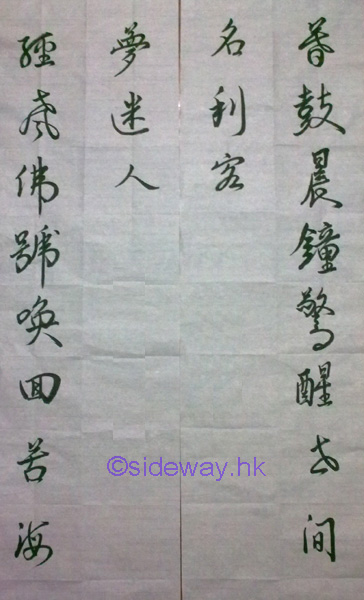 暮鼓晨鐘驚醒世间
名利客
經聲佛號喚回苦海
夢迷人
©sideway.hk